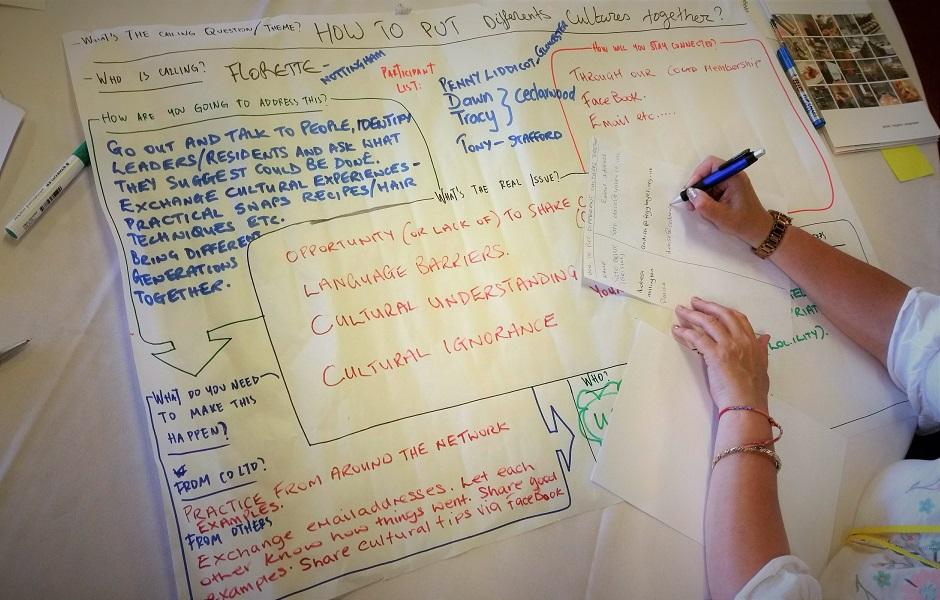 WHAT'S THE CALLING QUESTION/THEME? HOW TO PUT Differents Cultures together?
WHO IS CALLING? FLORETTE - NOTTINGHAM
PARTICIPANT
LIST:
PENNY LIDDICOT - GLOUCESTER
Dawn
Tracy } Cedarwood
TONY - STAFFORD
HOW WILL YOU STAY CONNECTED?
THROUGH OUR COLTD Membership
FaceBook.
Email etc.....
HOW ARE YOU GOING TO ADDRESS THIS?
GO OUT AND TALK TO PEOPLE, IDENTIFY
LEADERS/RESIDENTS AND ASK WHAT
THEY SUGGEST COULD BE DONE.
EXCHANGE CULTURAL EXPERIENCES -
PRACTICAL SNAPS RECIPES/HAIR
TECHNIQUES ETC.
BRING DIFFERENT
GENERATIONS
TOGETHER.
WHAT'S THE REAL ISSUE?
OPPORTUNITY (OR LACK OF) TO SHARE
LANGUAGE BARRIERS.
CULTURAL UNDERSTANDING
CULTURAL IGNORANCE
WHAT DO YOU NEED
TO MAKE THIS
HAPPEN?
FROM CO LTD?
PRACTICE FROM AROUND THE NETWORK
EXAMPLES.
FROM OTHERS
Exchange emailaddresses. Let each
other know how things went. Share good
examples. Share cultural tips via FaceBook
WHO?